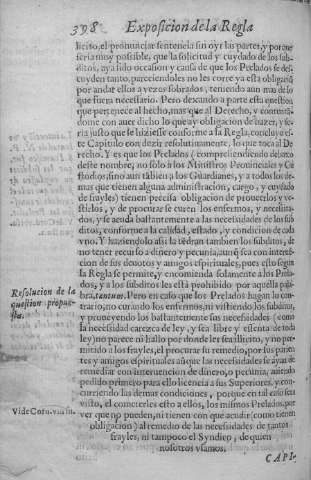 398 Exposicion de la Regla
licito, el pronunciar sentencia sin oyr las partes, y porque
seria muy possible, que la solicitud y cuydado de los sub-
ditos, aya sido occasion y causa de que los Prelados se des-
cuyden tanto, pareciendoles no les corre ya esta obligaciõ
por andar ellos a vezes sobrados, teniendo aun mas de lo
que fuera necessario. Pero dexando a parte esta question
que pertenece al hecho, mas que al Derecho, y contentã-
dome con auer dicho lo que ay obligacion de hazer, y se-
ria justo que se hiziesse conforme a la Regla, concluyo es-
te Capitulo con dezir resolutamente, lo que toca al De-
recho. Y es que los Prelados (comprehendiendo debaxo
deste nombre, no solo a los Ministros Prouinciales y Cu-
stodios, sino aun tãbien a los Guardianes, y a todos los de-
mas que tienen alguna administracion, cargo, y cuydado
de frayles) tienen precisa obligacion de proueerlos y ve-
stirlos, y de procurar se curen los enfermos, y necessita-
dos, y se acuda bastantemente a las necesidades de los sub-
ditos, conforme a la calidad, estado, y condicion de cada
vno. Y haziendolo assi la tẽdran tambien los subditos, de
no tener recurso a dinero y pecunia, aunq̃ sea con interuẽ-
cion de sus deuotos y amigos espirituales, pues esto segun
la Regla se permite, y encomienda solamente a los Prela-
dos, y a los subditos les està prohibido por aquella pala-
bra, tantum. Pero en caso que los Prelados hagan lo con-
trario, no curando los enfermos, ni vistiendo los subditos,
y proueyendo los bastantemente sus necessidades (como
la necessidad carezca de ley, y sea libre y essenta de toda
ley) no parece ni hallo por donde les sea illicito, y no per-
mitido a los frayles, el procurar su remedio, por sus parien-
tes y amigos espirituales aunque las necessidades se ayan de
remediar con interuencion de dinero, o pecunia, auiendo
pedido primero para ello licencia a sus Superiores, y con-
curriendo las demas condiciones, porque en tal caso serà
visto, el cometerles esto a ellos, los mismos Prelados, por
ver que no pueden, ni tienen con que acudir (como tienen
obligacion) al remedio de las necessidades de tantos
frayles, ni tampoco el Syndico, de quien
nosotros vsamos.
CAPI-
Resolucion de la
question propue-
sta.